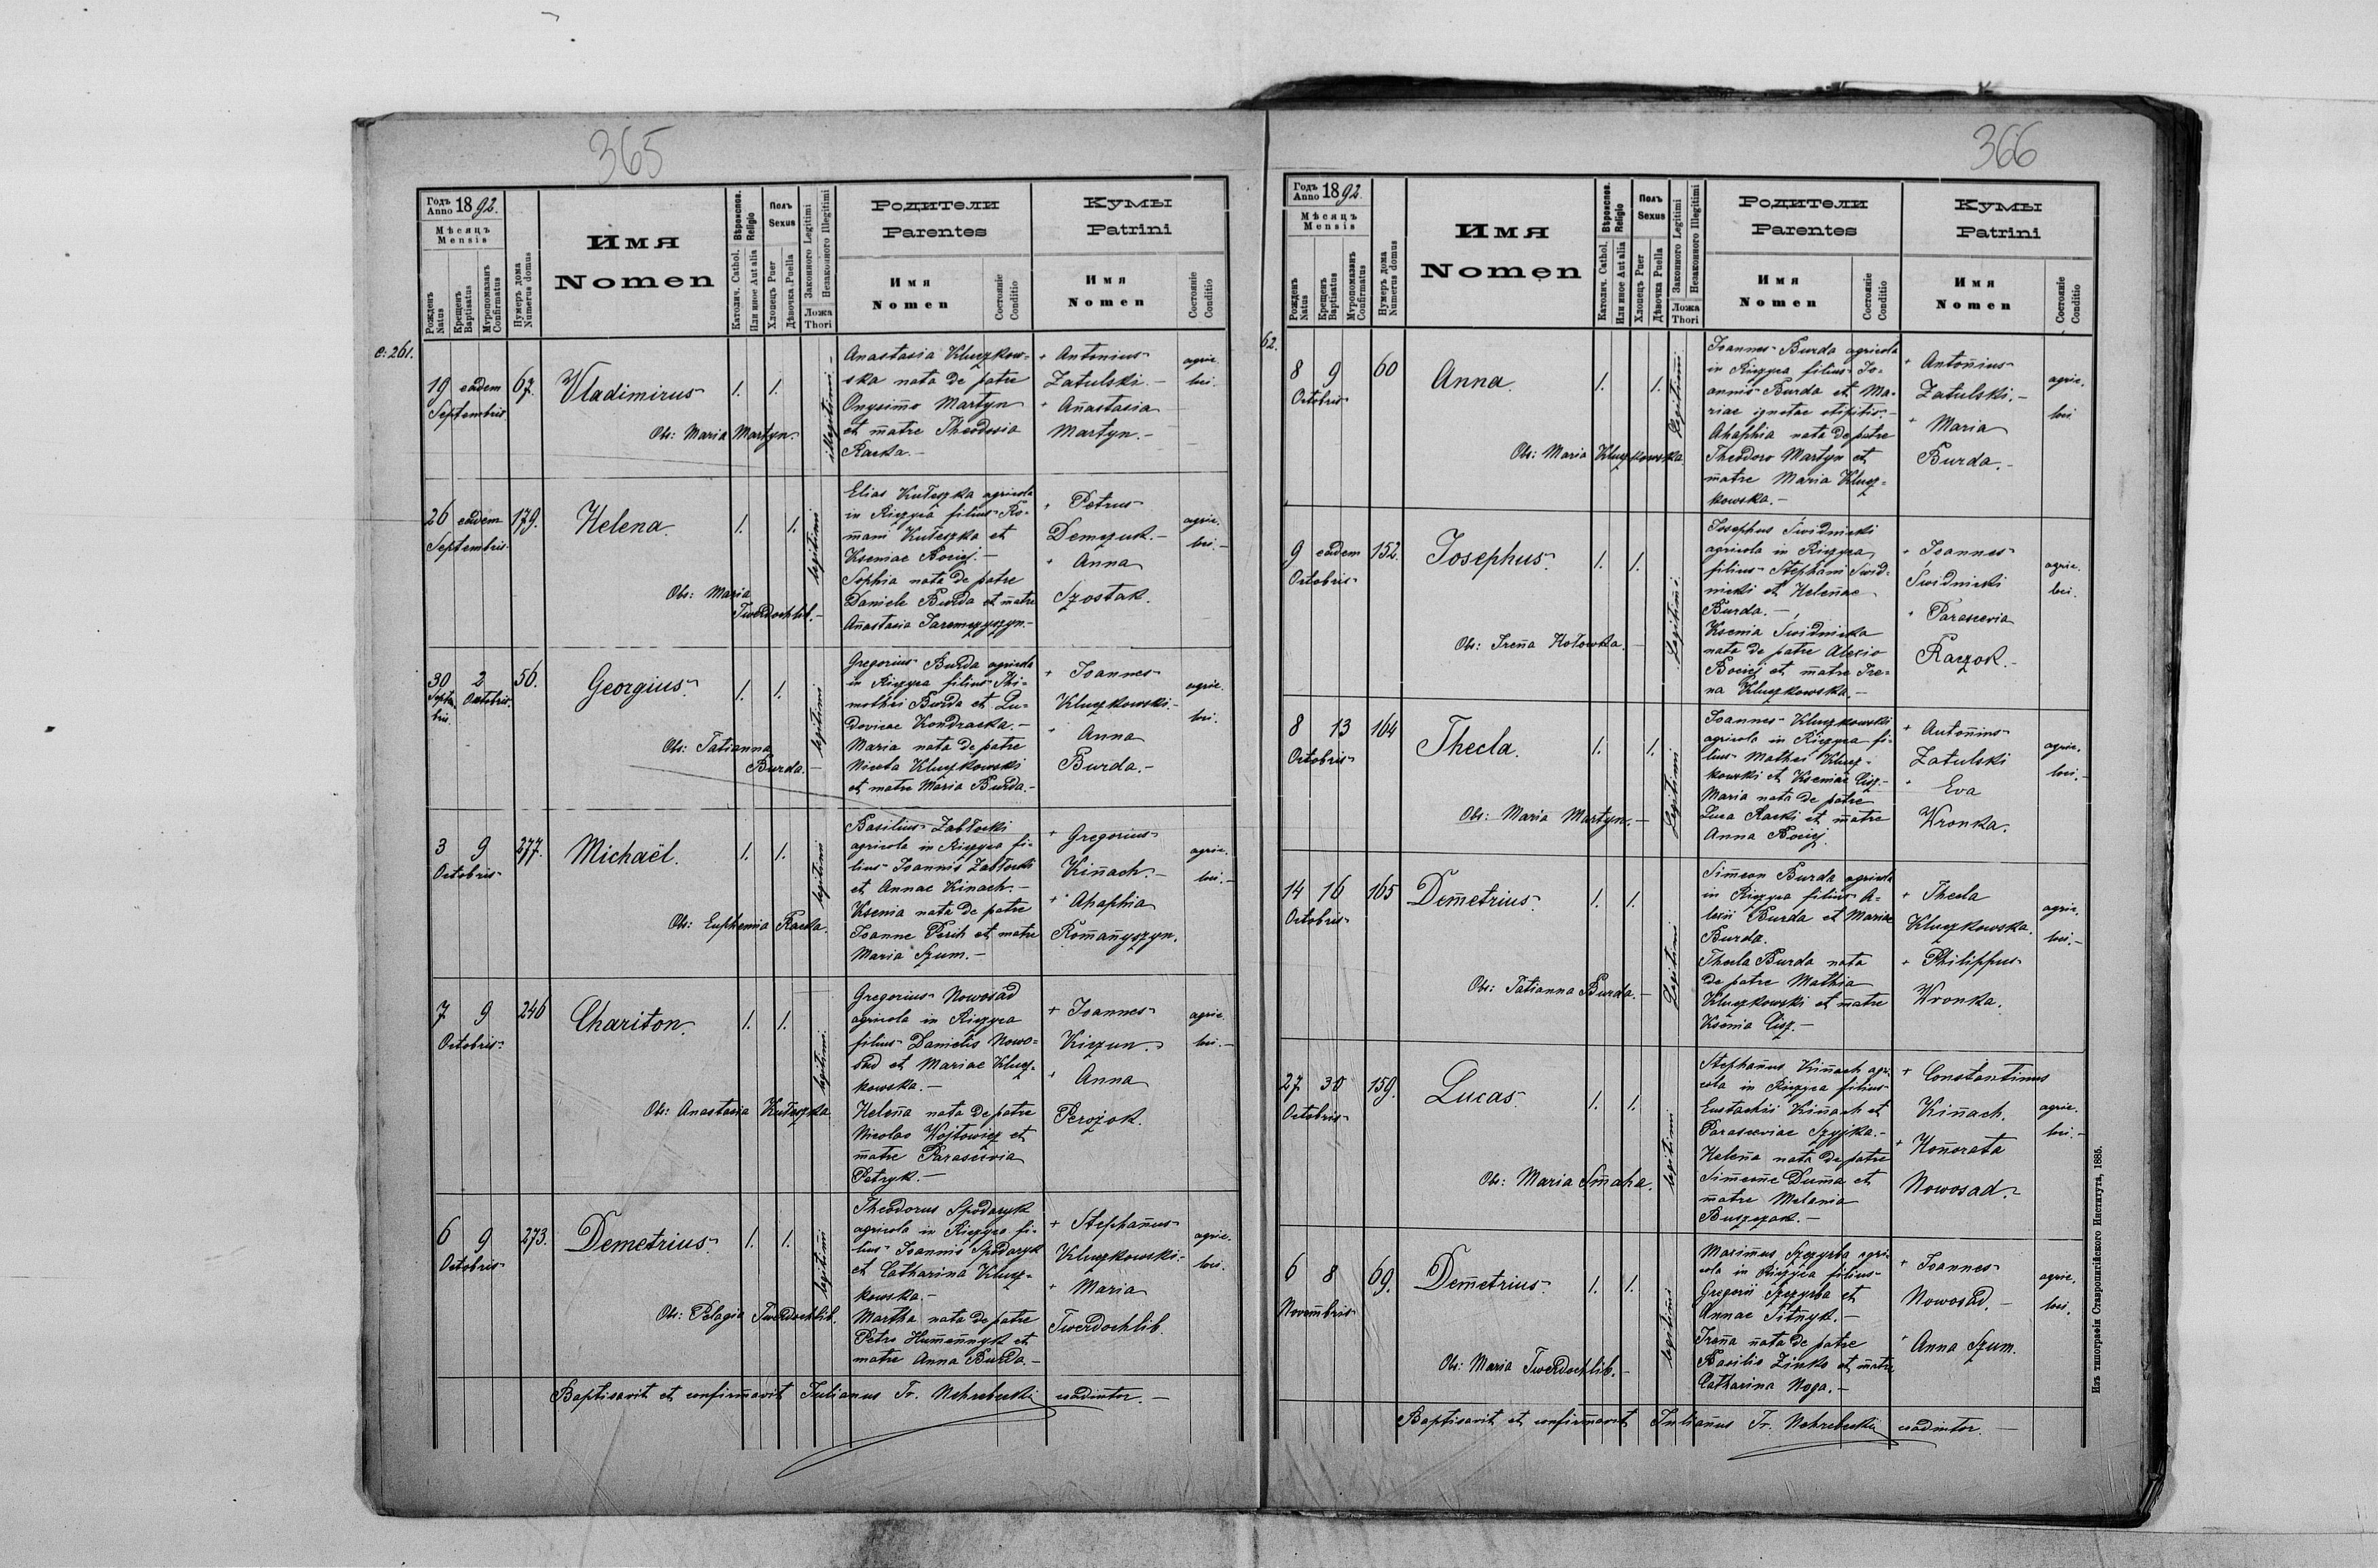 365
Годъ
Anno 1892.
Мѣсяцъ
Mensis
Рожденъ
Natus
Крещенъ
Baptisatus
Муропомазанъ
Confirmatus
Нумеръ дома
Numerus domus
Имя
Nomen
Вѣроиспов.
Religio
Католич. Cathol.
Или иное Aut alia
Полъ
Sexus
Хлопецъ Puer
Дѣвочка Puella
Законного Legitimi
Незаконного Illegitimi
Ложа
Thori
Родители
Parentes
Имя
Nomen
Состояніе
Conditio
Кумы
Patrini
Имя
Nomen
Состояніе
Conditio
c: 261.
19 eadem 67. Vladimirus 1. 1.
Septembris
Obs: Maria Martyn.
illegitimi
Anastasia Kluczkow=
ska nata de patre
Onysimo Martyn
et matre Theodosia
Racka.-
+ Antonius
Zatulski.-
+ Anastasia
Martyn.-
agric.
loci.
26 eadem 179. Helena. 1. 1.
Septembris
Obs: Maria
Twerdochlib.-
legitimi
Elias Kuteszka agricola
in Rieczyca filius Ro-
mani Kuteszka et
Kseniae Bociej.-
Sophia nata de patre
Daniele Burda et matre
Anastasia Jaremczyszyn.-
+ Petrus
Demczuk.-
+ Anna
Szostak.
agric.
loci.-
30 2 56. Georgius 1. 1.
Septem-
bris. Octobris.
Obs: Tatianna
Burda.-
legitimi
Gregorius Burda agricola
in Rieczyca filius Thi-
mothei Burda et Lu-
dovicae Kondracka.-
Maria nata de patre
Niceta Kluczkowski
et matre Maria Burda.-
+ Joannes
Kluczkowski.-
+ Anna
Burda.-
agric.
loci.
3 9 277. Michaël. 1. 1.
Octobris
Obs: Euphemia Racka.
legitimi
Basilius Zabłocki
agricola in Rieczyca fi-
lius Joannis Zabłocki
et Annae Kinach.-
Ksenia nata de patre
Joanne Perih et matre
Maria Szum.-
+ Gregorius
Kinach.-
+ Ahaphia
Romanyszyn.
agric.
loci.-
7 9 246 Chariton. 1. 1.
Octobris
Obs: Anastasia Kuteszka
legitimi.
Gregorius Nowosad
agricola in Rieczyca
filius Danielis Nowo=
sad et Mariae Klucz-
kowska.-
Helena nata de patre
Nicolao Wojtowicz et
matre Parascevia
Petryk.-
+ Joannes
Kiczun.
+ Anna
Perożok.
agric.
loci.-
6 9 273. Demetrius. 1. 1.
Octobris
Obs: Pelagia Twerdochlib.
legitimi
Theodorus Spodaryk
agricola in Rieczyca fi-
lius Joannis Spodaryk
et Catharina Klucz-
kowska.-
Martha nata de patre
Petro Humennyk et
matre Anna Burda.-
+ Stephanus
Kluczkowski.-
+ Maria
Twerdochlib.
agric.
loci.
Baptisavit et confirmavit Julianus Tr. Nehrebecki coadiutor.-
366
Годъ
Anno 1892.
Мѣсяцъ
Mensis
Рожденъ
Natus
Крещенъ
Baptisatus
Муропомазанъ
Confirmatus
Нумеръ дома
Numerus domus
Имя
Nomen
Вѣроиспов.
Religio
Католич. Cathol.
Или иное Aut alia
Полъ
Sexus
Хлопецъ Puer
Дѣвочка Puella
Законного Legitimi
Незаконного Illegitimi
Ложа
Thori
Родители
Parentes
Имя
Nomen
Состояніе
Conditio
Кумы
Patrini
Имя
Nomen
Состояніе
Conditio
62.
8 9 60 Anna. 1. 1.
Octobris
Obs: Maria Kluczkowska.
Legitimi
Joannes Burda agricola
in Rieczyca filius Jo-
annis Burda et Ma-
riae ignotae stipitis.-
Ahaphia nata de patre
Theodoro Martyn et
matre Maria Klucz=
kowska.-
+ Antonius
Zatulski.-
+ Maria
Burda.-
agric.
loci
9 eadem 152. Josephus. 1. 1.
Octobris
Obs: Irena Kotowka.-
Legitimi.
Josephus Świdnicki
agricola in Rieczyca
filius Stephani Świd-
nicki et Helenae
Burda.-
Ksenia Świdnicka
nata de patre Alexio
Bociej et matre Ire-
na Kluczkowska.-
+ Joannes
Świdnicki
+ Parascevia
Raczok.-
agric.
loci.
8 13 164 Thecla. 1. 1.
Octobris
Obs: Maria Martyn.-
Legitimi
Joannes Kluczkowski
agricola in Rieczyca fi-
lius Mathei Klucz-
kowski et Kseniae Cisz.-
Maria nata de patre
Luca Racki et matre
Anna Bociej.
+ Antonius
Zatulski
+ Eva
Wronka.
agric.
loci.-
14 16 165 Demetrius. 1. 1.
Octobris
Obs: Tatianna Burda.-
Legitimi
Simeon Burda agricola
in Rieczyca filius A-
lexii Burda et Mariae
Burda.
Thecla Burda nata
de patre Mathia
Kluczkowski et matre
Ksenia Cisz.-
+ Thecla
Kluczkowska.
+ Philippus
Wronka.
agric.
loci.-
27 30 159. Lucas. 1. 1.
Octobris
Obs: Maria Smaha.
legitimi
Stephanus Kinach agri-
cola in Rieczyca filius
Eustachii Kinach et
Parasceviae Szyjka.-
Helena nata de patre
Simeone Duma et
matre Melania
Buszczak.-
+ Constantinus
Kinach.
+ Honorata
Nowosad.
agric.
loci.-
6 8 69. Demetrius. 1. 1.
Novembris
Obs: Maria Twerdochlib.-
legitimi
Maximus Szczyrba agri-
cola in Rieczyca filius
Gregorii Szczyrba et
Annae Sitnyk.-
Irena nata de patre
Basilio Zinko et matre
Catharina Noga.-
+ Joannes
Nowosad.-
+ Anna Szum.
agric.
loci.
Baptisavit et confirmavit Julianus Tr. Nehrebecki coadiutor.-
Изъ типографіи Ставропигійского Института, 1885.